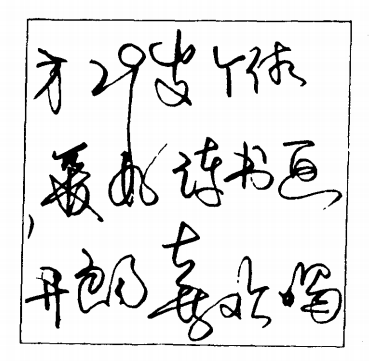 才29岁个体
爱好诗书画
,开朗喜欢唱